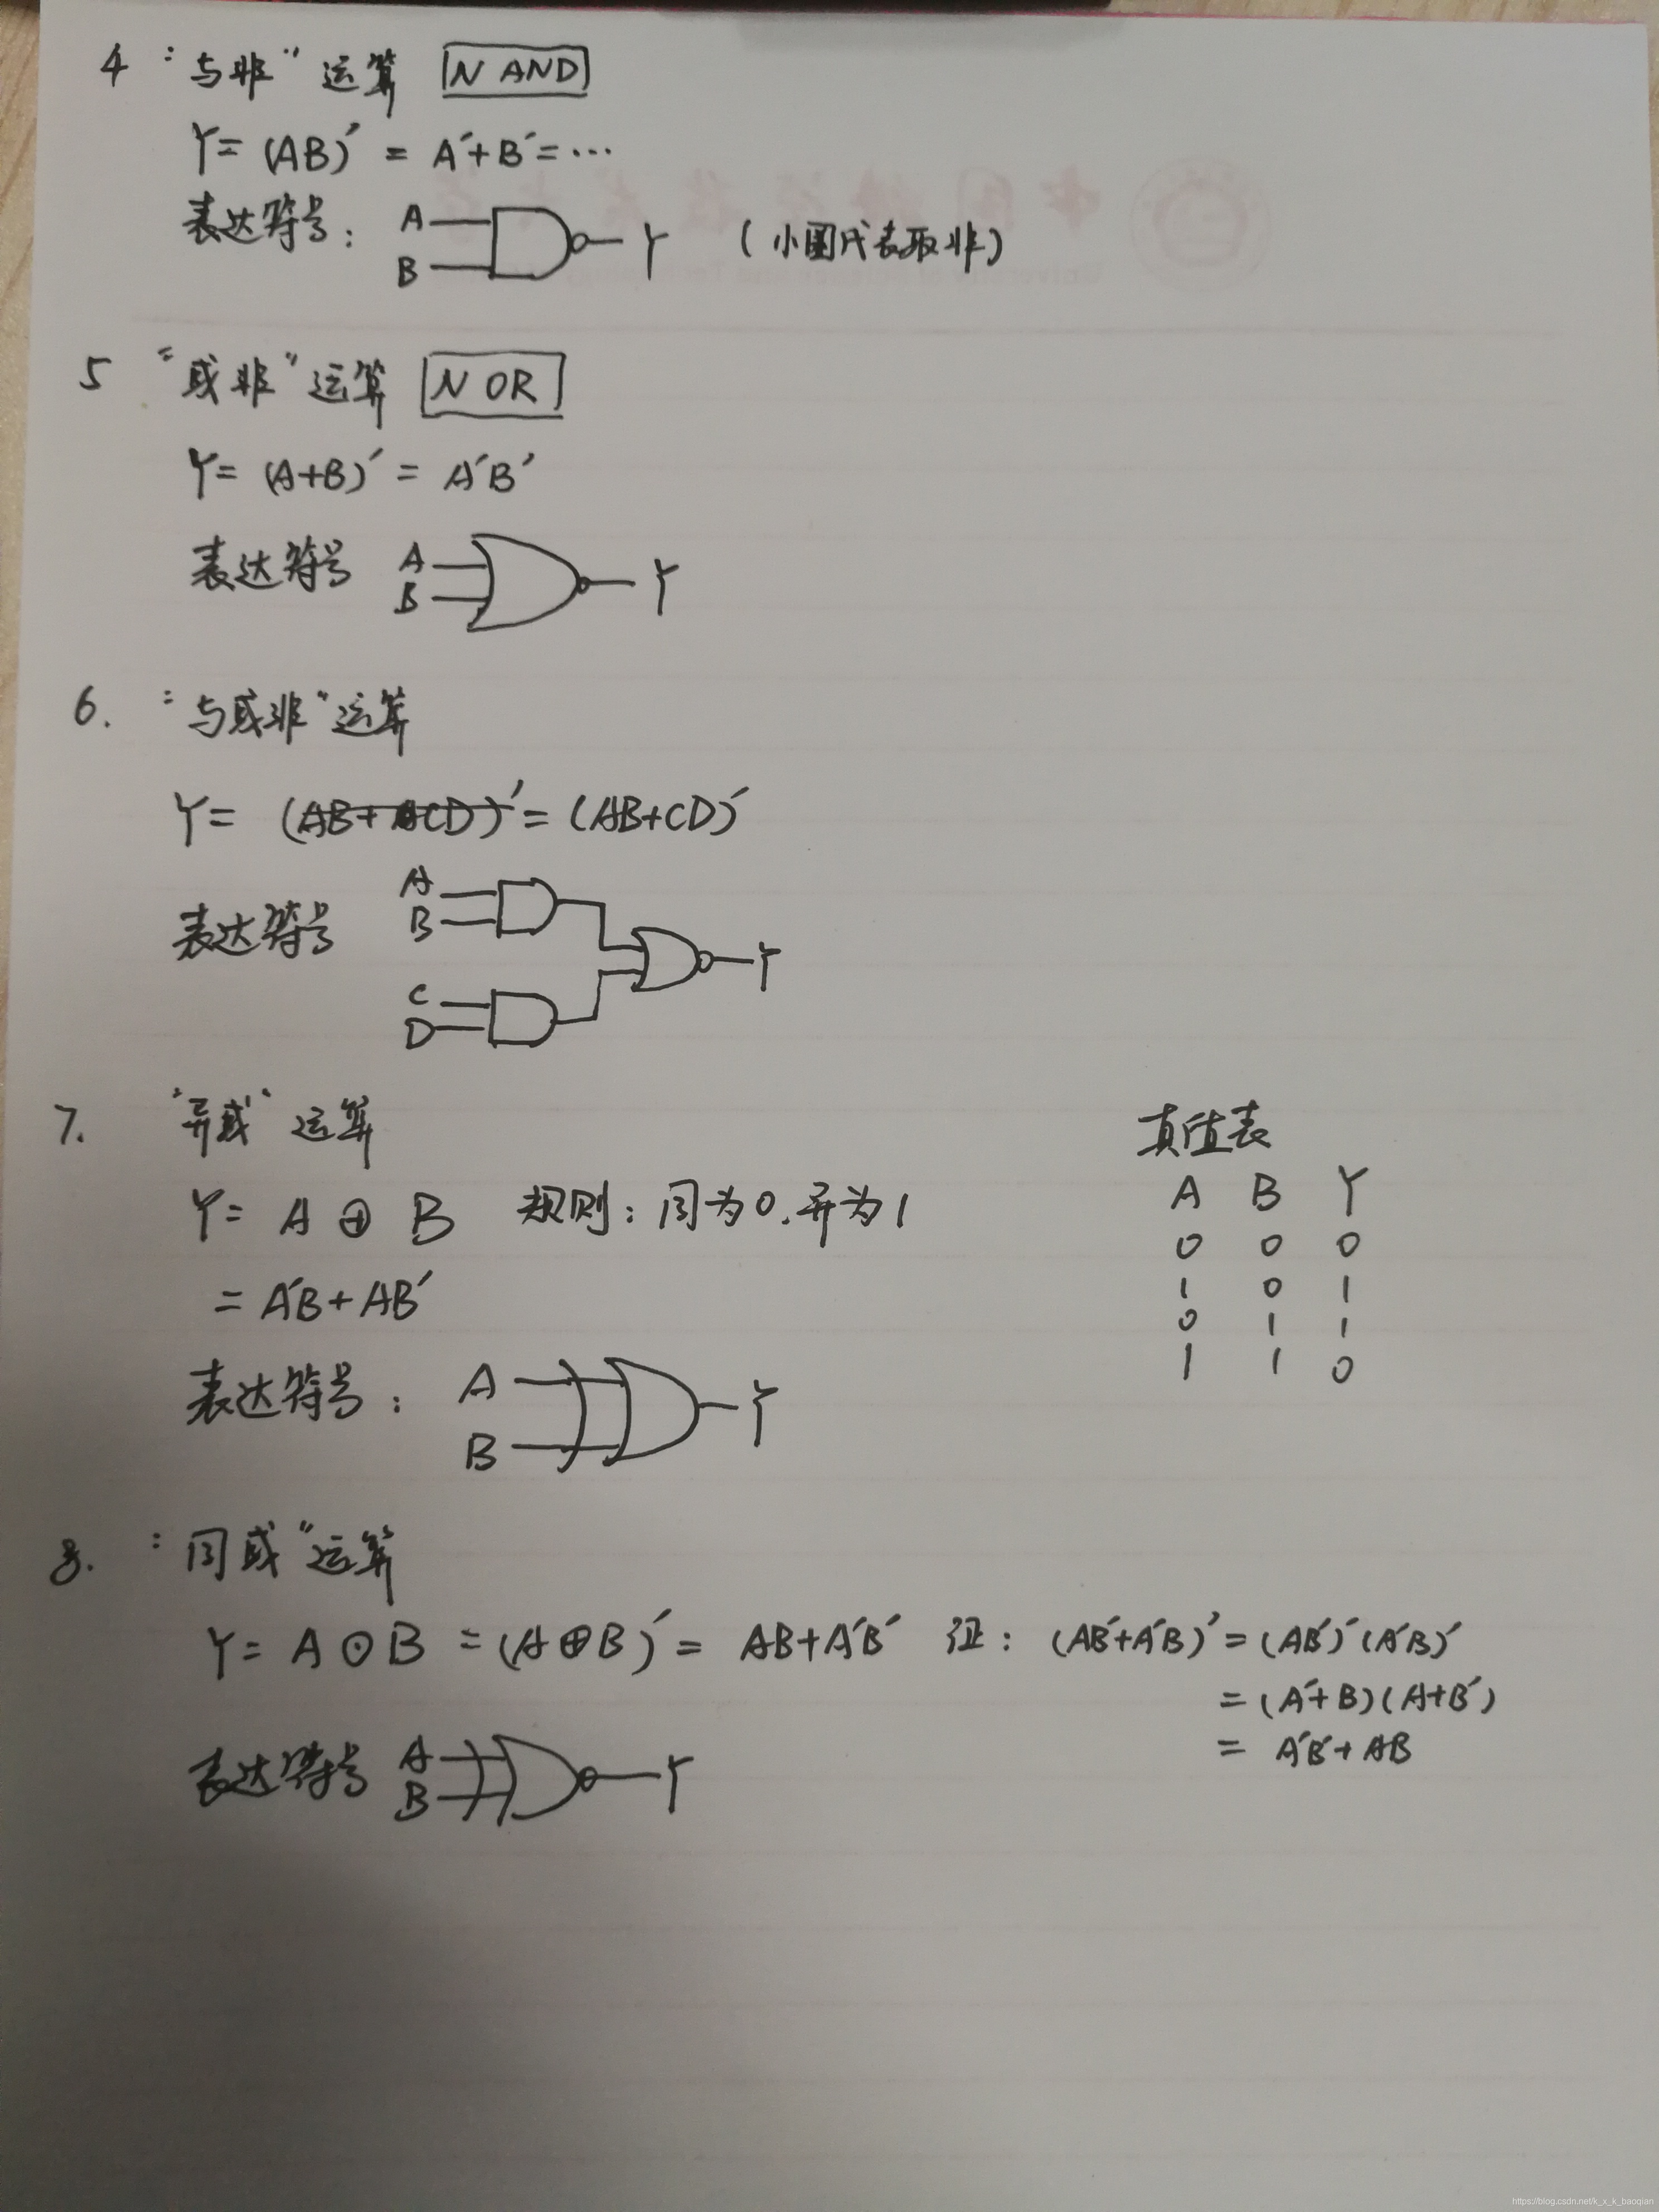 4 “与非” 运算 NAND
Y = (AB)′ = A′+B′ = …
表达符号： A B Y （小圈代表取非）
5 “或非” 运算 NOR
Y = (A+B)′ = A′B′
表达符号 A B Y
6. “与或非” 运算
Y = (AB+ACD)′ = (AB+CD)′
表达符号 A B C D Y
7. “异或” 运算
Y = A ⊕ B 规则：同为0.异为1
= A′B + AB′
表达符号： A B Y
真值表
A B Y
0 0 0
1 0 1
0 1 1
1 1 0
8. “同或” 运算
Y = A ⊙ B = (A⊕B)′ = AB+A′B′ 证： (AB′+A′B)′ = (AB′)′(A′B)′
= (A′+B)(A+B′)
= A′B′ + AB
表达符号 A B Y
https://blog.csdn.net/k_x_k_baoqian